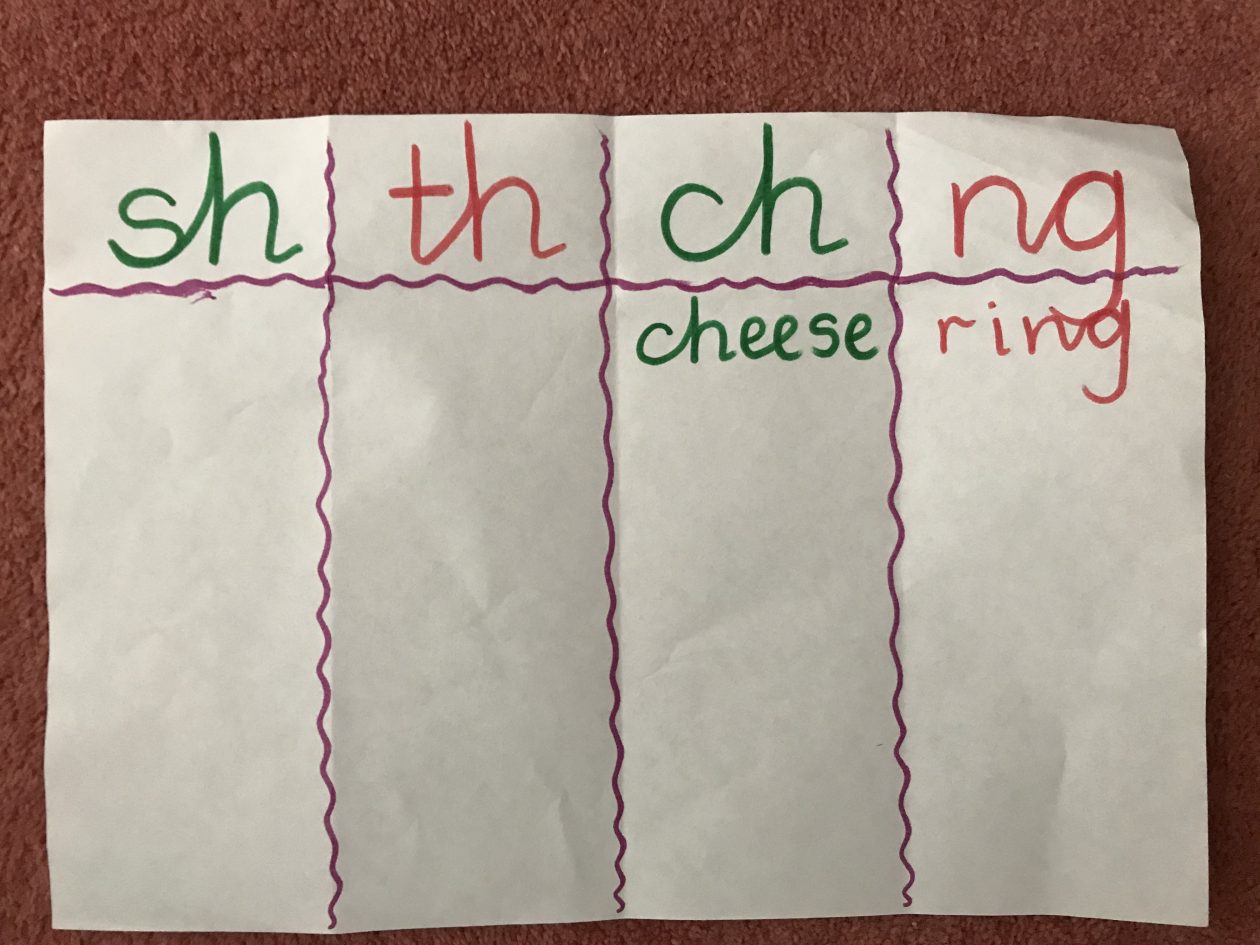 sh th ch ng
cheese ring